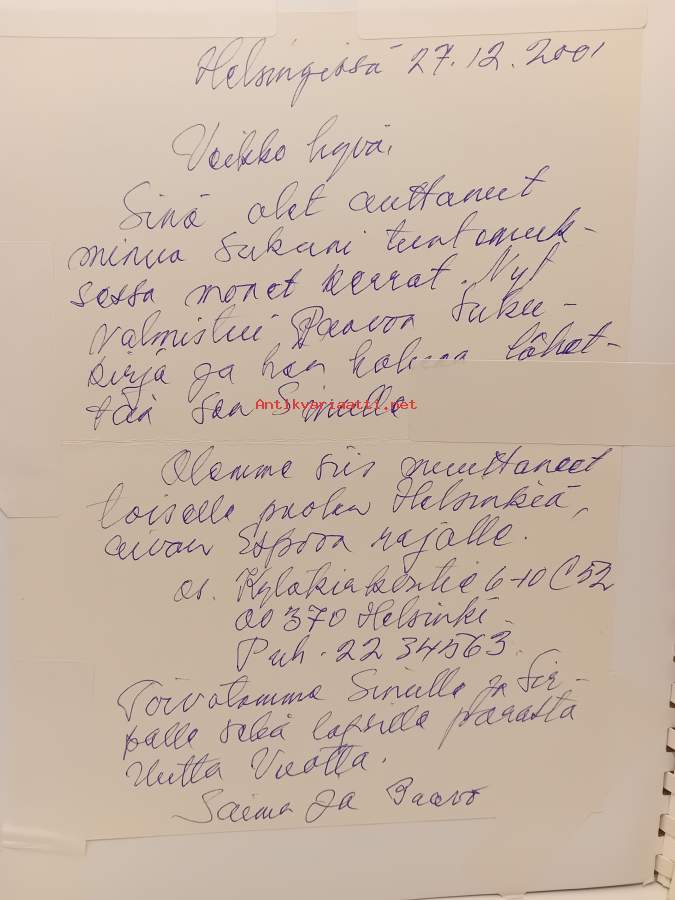 Helsingissä 27.12.2001
Veikko hyvä,
Sinä olet auttaneet
minua sukuni tuntemuk-
sessa monet kerrat. Nyt
valmistui Paavon suku-
kirja ja hän haluaa lähet-
tää sen Sinulle
Antikvariaatti.net
Olemme siis muuttaneet
toiselle puolen Helsinkiä,
aivan Espoon rajalle.
os. Kylätie 6-10 C 52
00370 Helsinki
Puh. 22 34563.
Toivotamme Sinulle ja Sir-
palle sekä lapsille parasta
Uutta Vuotta.
Saima ja Paavo